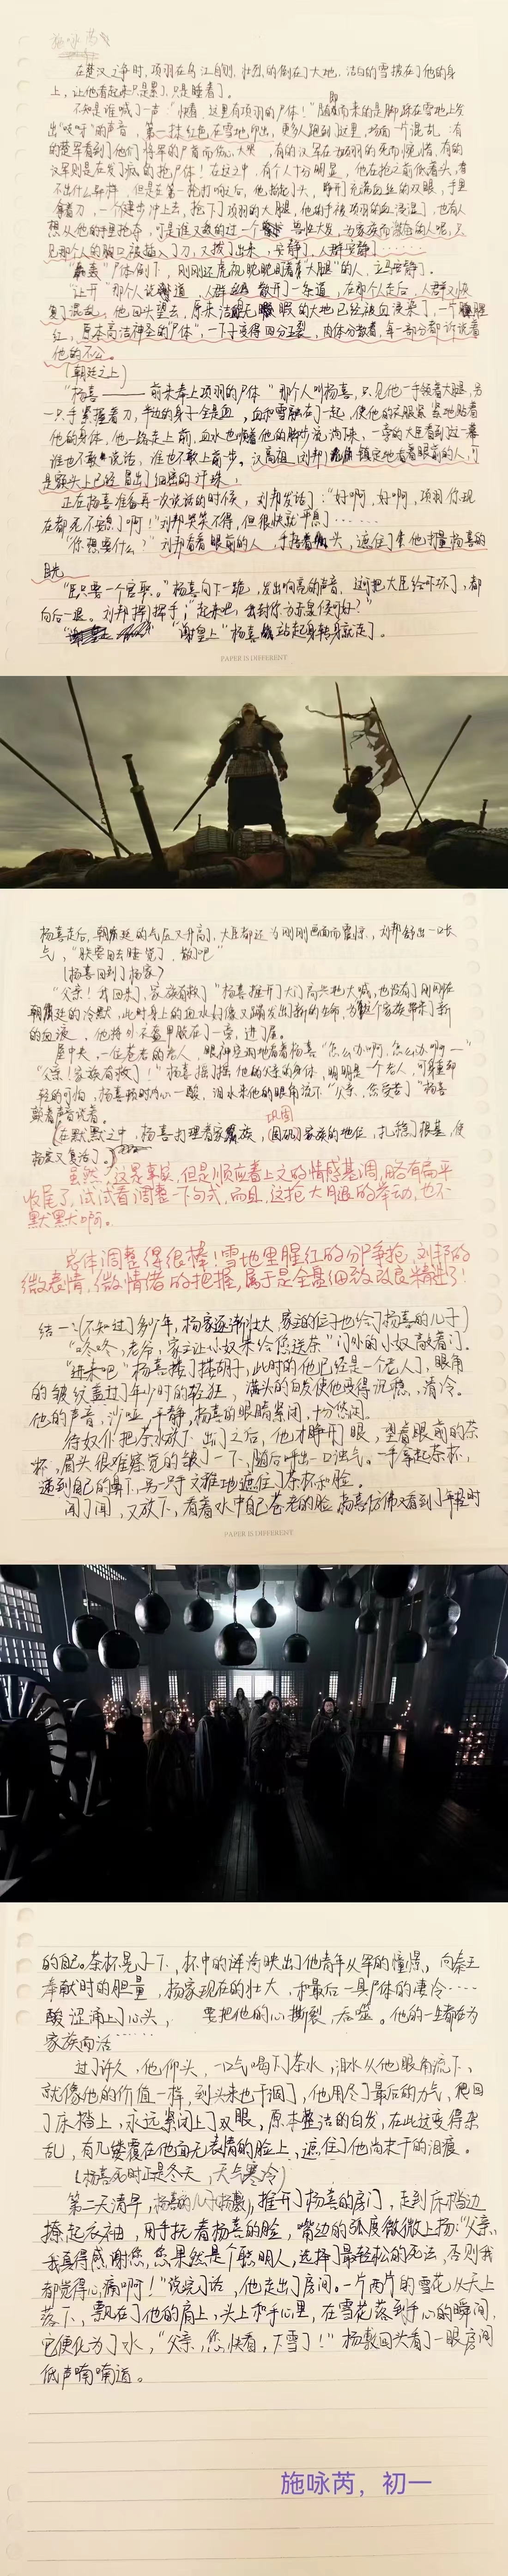 施咏芮
在楚汉之争时，项羽在乌江自刎，壮烈的倒在了大地，洁白的雪披在了他的身
上，让他看起来只是累了，只是睡着了。
不知是谁喊了一声“快看，这里有项羽的尸体！”随即而来的是脚踩在雪地上发
出“吱呀”的声音，第一抹红色在雪地印出，更多人跑到这里，场面一片混乱，有
的楚军看到了他们将军的尸首而伤心大哭，有的汉军在为项羽的死而惋惜，有的
汉军则是在发了疯的抢尸体！在这之中，有个人十分明显，他在抢之前低着头，看
不出什么异样，但是在第一轮打响后，他抬起头，睁开充满血丝的双眼，手里
拿着刀，一个健步冲上去，抢下了项羽的大腿，他的手被项羽的血浸湿了，也有人
想从他的手里抢夺，可是谁又敌的过一个兽性大发，为家族而激自的人呢，只
见那个人的胸口被插入了刀，又拔了出来，安静了，人群安静了……
尸体倒下，刚刚还虎视眈眈盯着“大腿”的人，立马安静了。
“让开”那个人说道，人群散开了一条道，在那个人走后，人群又恢
复了混乱，他回头望去，原来洁白无暇的大地已经被血浸染了，一片腥
红，原本高洁神圣的“尸体”，一下子变得四分五裂，肉体分散着，每一部分都诉说着
他的不公。
（朝廷之上）
“杨喜——前来奉上项羽的尸体”那个人叫杨喜，只见他一手领着大腿，另
一只手紧握着刀，半边的身子全是血，血和雪融在了一起，使他的衣服紧紧地贴着
他的身体，他一路走上前，血水也顺着他的脚步流淌下来，一旁的大臣看到这一幕
谁也不敢说话，谁也不敢上前步。汉高祖刘邦镇定地看着眼前的人，可
是额头上已经冒出了细密的汗珠，
正在杨喜准备再一次说话的时候，刘邦发话了：“好啊，好啊，项羽你现
在都死不安息了啊！”刘邦哭笑不得，但很快就平息了……
“你想要什么？”刘邦看着眼前的人，手捂着头，遮住了他打量杨喜的
目光
“臣只要一个官职。”杨喜向下一跪，发出响亮的声音，这可把大臣给吓坏了，都
向后一退。刘邦挥了挥手；“起来吧，我封你为赤泉侯可好？”
“谢皇上”杨喜站起身转身就走了。
PAPER IS DIFFERENT
杨喜走后，朝廷的气压又升高了，大臣都还为刚刚画面而震惊，刘邦舒出一口长
气，“朕要回去睡觉了，散吧”
（杨喜回到了杨家）
“父亲！我回来了，家族有救了”杨喜推开了大门高兴地大喊，也没有了刚刚在
朝廷的冷默，此时身上的血水好像又焕发出了新的生命，为整个家族带来了新
的血液，他将外衣盔甲脱在了一旁，进了屋。
屋中央，一位苍老的老人，眼神空洞地看着杨喜“怎么办啊，怎么办啊——”
“父亲！家族有救了！”杨喜摇了摇他的父亲的身体，明明是一个老人，可身重却
轻的可怕，杨喜顿时内心一酸，泪水从他的眼角流下“父亲，您受苦了”杨喜
颤着声音说着。
巩固
（在默默之中，杨喜打理着家族，家族的地位，扎稳了根基，使
杨家又复活了。）
虽然，这是事实，但是顺应着上文的情感基调，略有扁平
收尾了，试试看调整一下句式，而且，这抢大腿的举动，也不
默默啊。
总体调整得很棒！雪地里腥红的分尸争抢，刘邦的
微表情，微情绪的把握，属于是全盘细致改良精进了！
结一：（不知过了多少年，杨家逐渐壮大，家主的位子也给了杨喜的儿子）
“咚咚，老爷，家主让小奴来给您送茶”门外的小奴敲着门。
“进来吧”杨喜捋了捋胡子，此时的他已经是一个老人了，眼角
的皱纹盖过了年少时的轻狂，满头的白发使他变得沉稳，清冷。
他的声音，沙哑，平静，杨喜的眼睛紧闭，十分悠闲。
待奴仆把茶水放下，出了门之后，他才睁开了眼，望着眼前的茶
杯，眉头很难察觉的皱了一下，胸后呼出一口浊气。一手拿起茶杯，
递到自己的鼻下，另一只手又雅地遮住了茶杯和脸。
闻了闻，又放下，看着水中自己苍老的脸，杨喜仿佛又看到了年轻时
PAPER IS DIFFERENT
的自己。茶杯晃了下，杯中的涟漪映出了他青年从军的憧憬，向秦王
奉献时的胆量，杨家现在的壮大，和最后一具尸体的凄冷……
酸涩涌上了心头，要把他的心撕裂，吞噬。他的一生都在为
家族而活……
过了许久，他仰头，一口气喝下了茶水，泪水从他眼角流下，
就像他的价值一样，到头来也干涸了，他用尽了最后的力气，爬回
了床榻上，永远紧闭上了双眼，原本整洁的白发，在此这变得杂
乱，有几缕覆在他面无表情的脸上，遮住了他尚未干的泪痕。
（杨喜死时正是冬天，天气寒冷）
第二天清早，杨喜的儿子杨敷，推开了杨喜的房门，走到床榻边
撩起衣袖，用手抚着杨喜的脸，嘴边的弧度微微上扬：“父亲，
我真得感谢您，您果然是个聪明人，选择了最轻松的死法，否则我
都觉得心痛啊！”说完了话，他走出了房间。一片两片的雪花从天上
落下，飘在了他的肩上，头上和手心里，在雪花落到手心的瞬间，
它便化为了水，“父亲，您快看，下雪了！”杨敷回头看了一眼房间
低声喃喃道。
施咏芮，初一